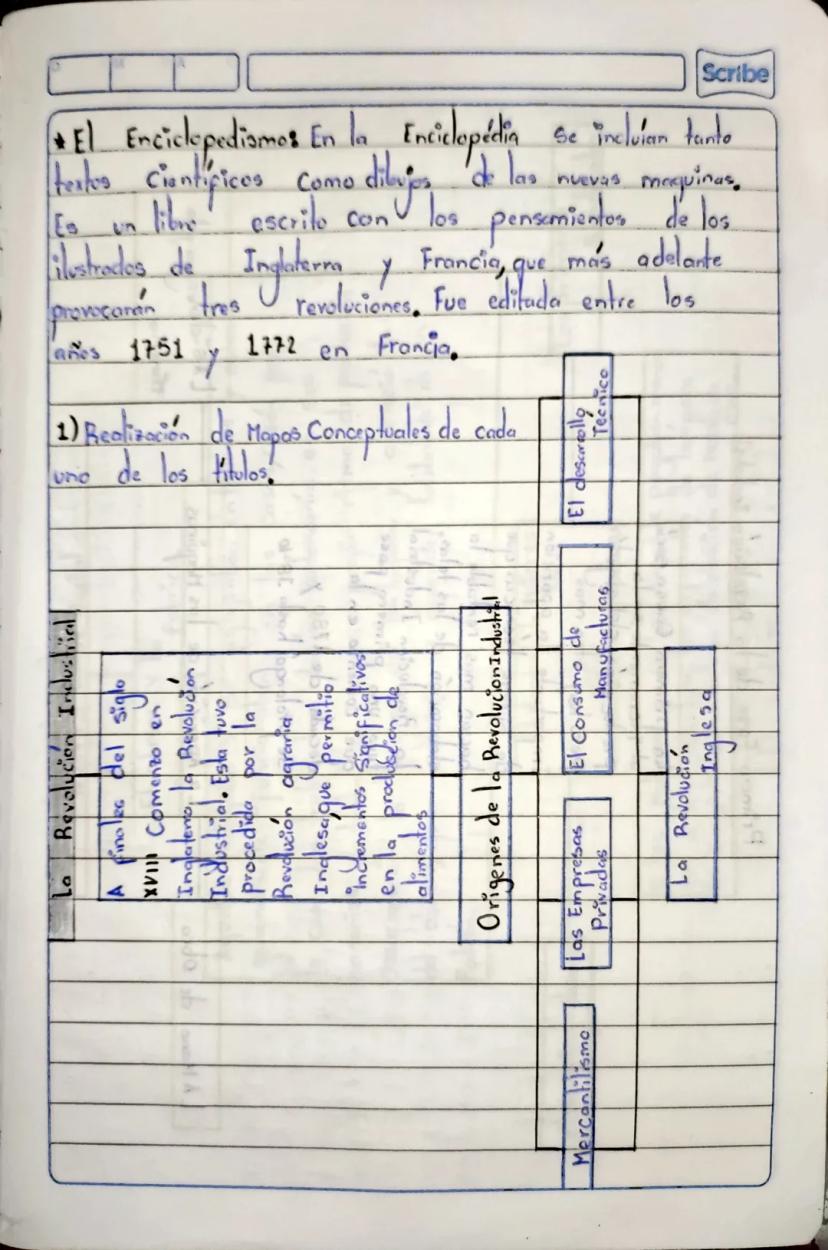 Scribe
* El Enciclopedismo: En la Enciclopédia se incluían tanto
textos Científicos Como dibujos de las nuevas maquinas.
Es un libro escrito con los pensamientos de los
ilustrados de Inglaterra y Francia, que más adelante
provocarán tres revoluciones. Fue editada entre los
años 1751 y 1772 en Francia.
1) Realización de Mapas Conceptuales de cada
uno de los títulos.
La Revolución Industrial
A finales del siglo
XVIII Comenzo en
Inglaterra, la Revolución
Industrial. Esta tuvo
procedida por la
Revolución agraria
Inglesa, que permitio
incrementos significativos
en la producción de
alimentos
Orígenes de la Revolución Industrial
Mercantilismo
Las Empresas
Privadas
El Consumo de
Manufacturas
El desarrollo
Técnico
La Revolución
Inglesa